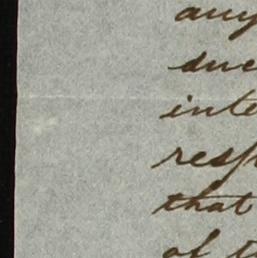 any
due
inte
resp
that
of t